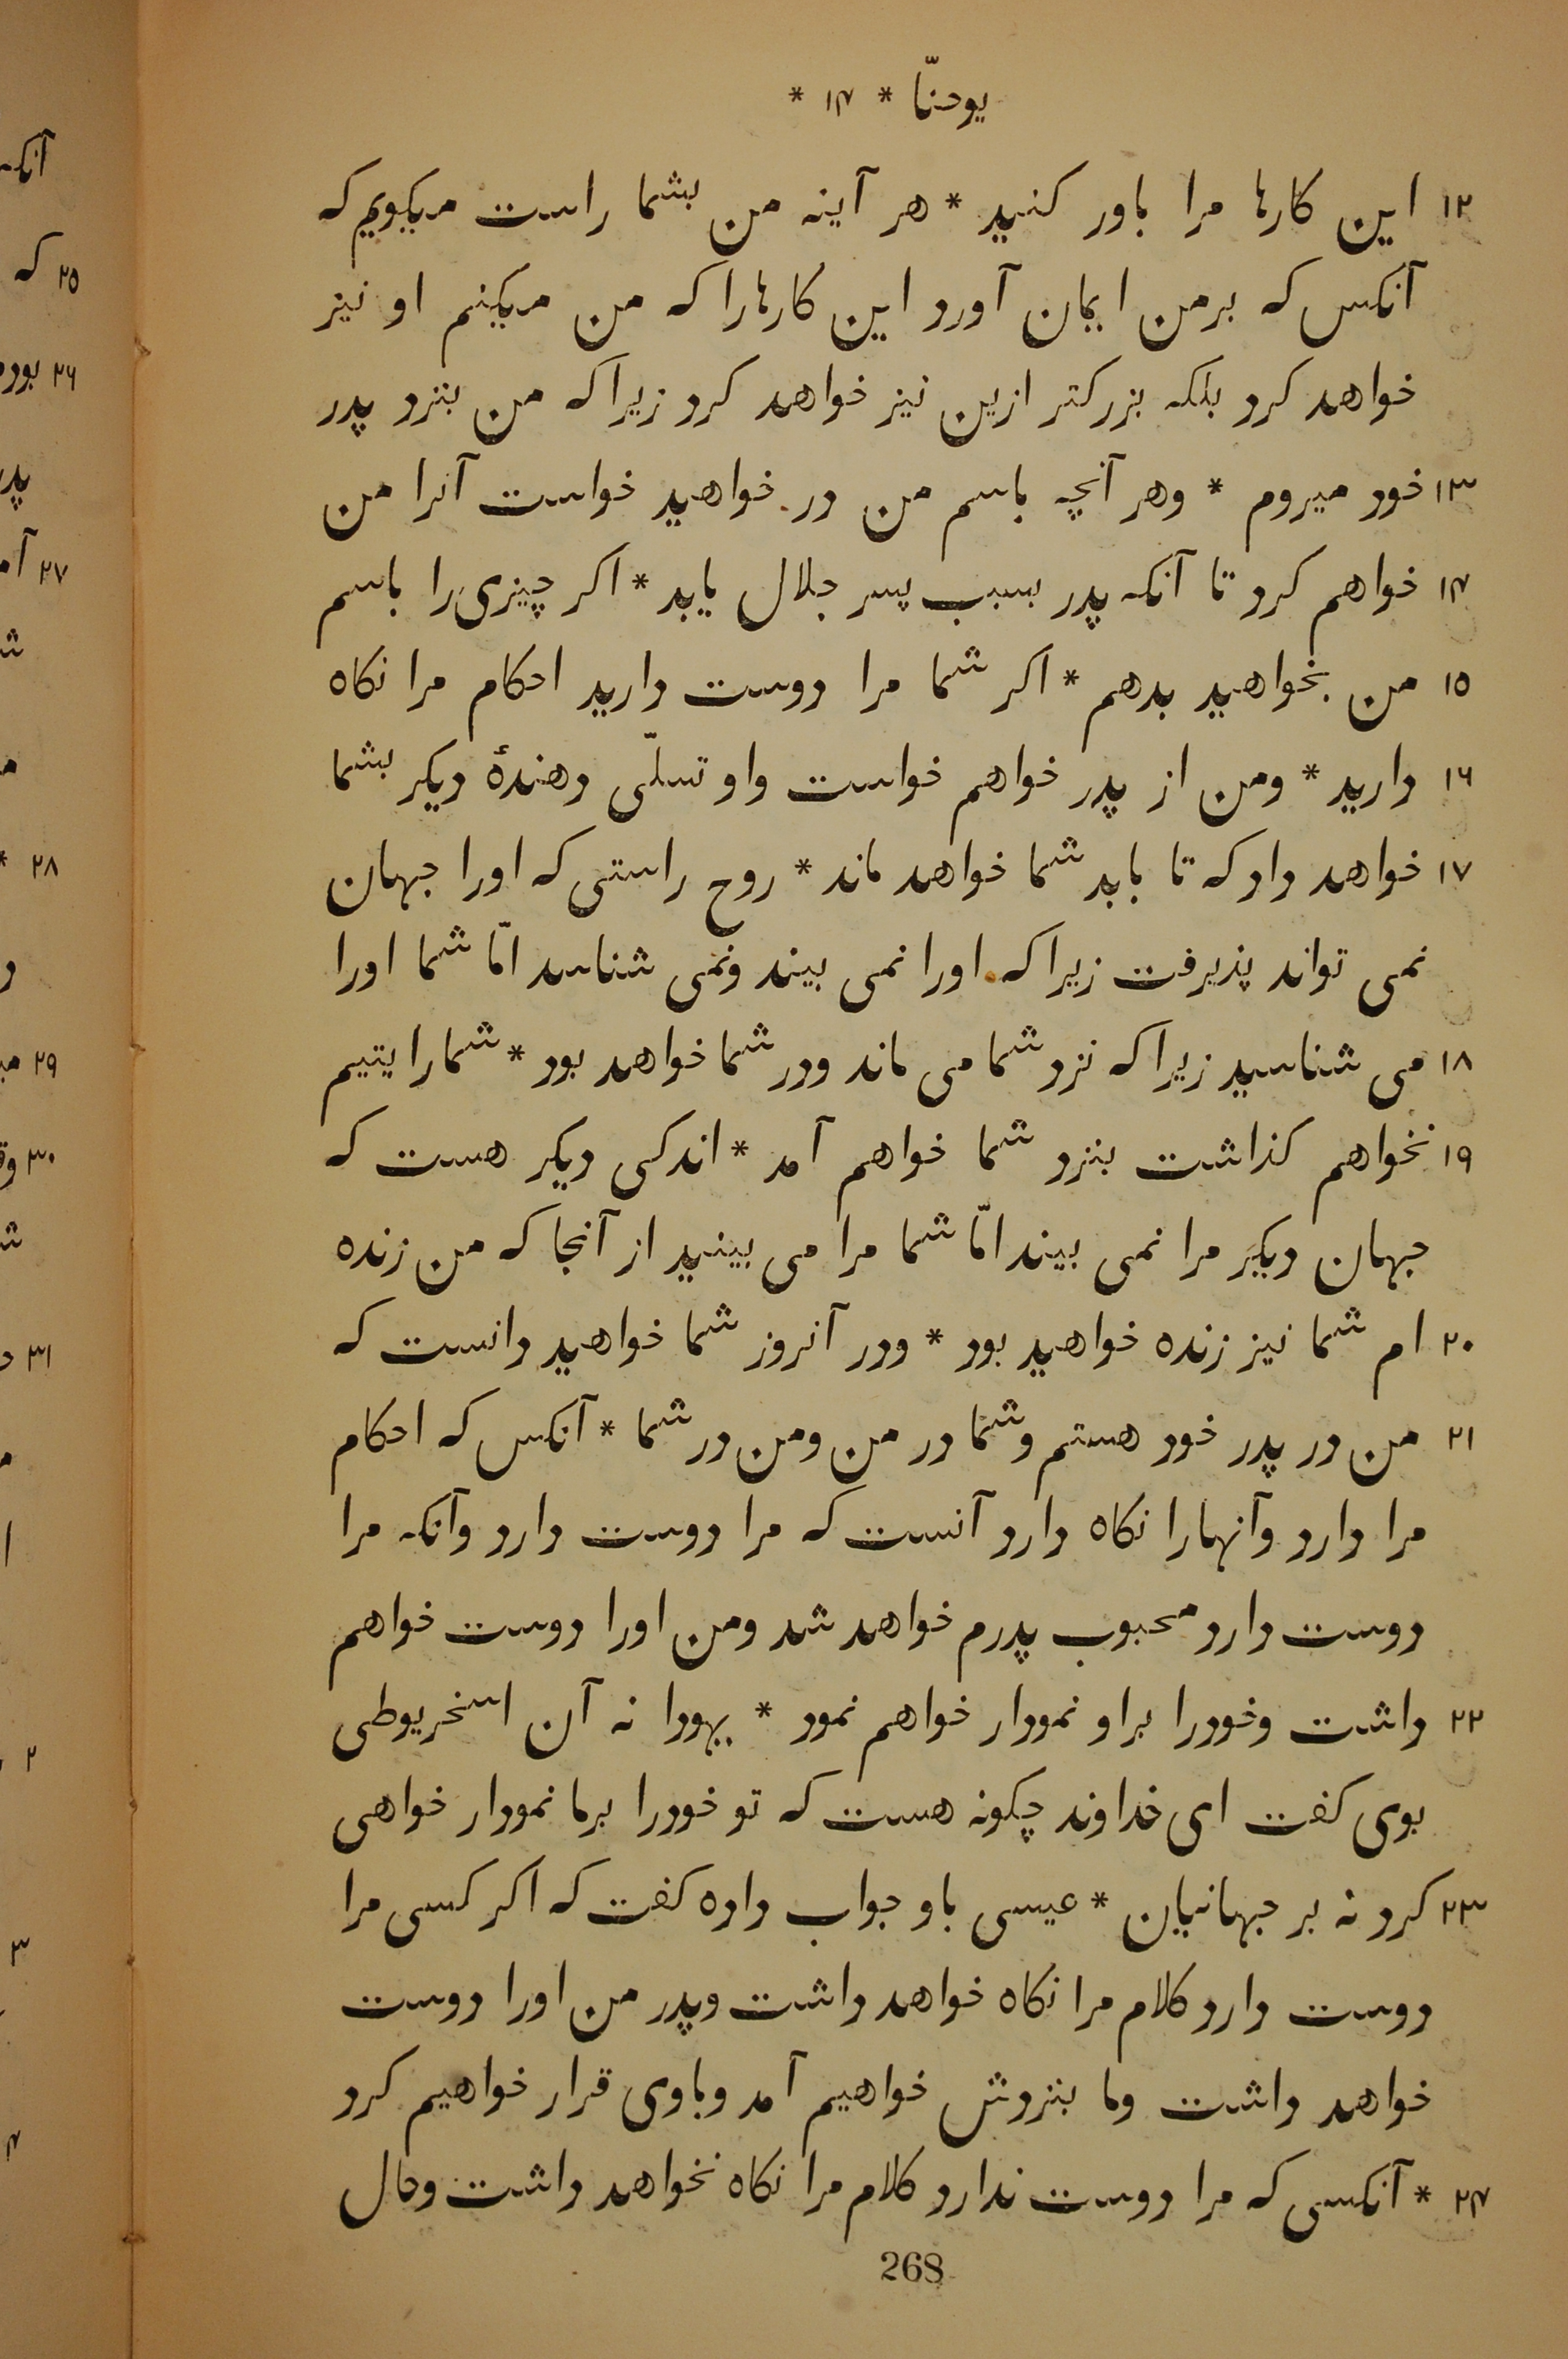 یوحنّا * ۱۴ *
۱۲ این کارها مرا باور کنید * هر آینه من بشما راست میکویم که
آنکس که برمن ایمان آورد این کارهارا که من میکنم او نیز
خواهد کرد بلکه بزرکتر ازین نیز خواهد کرد زیرا که من بنزد پدر
۱۳ خود میروم * وهر آنچه باسم من در خواهید خواست آنرا من
۱۴ خواهم کرد تا آنکه پدر بسبب پسر جلال یابد * اکر چیزی را باسم
۱۵ من بخواهید بدهم * اکر شما مرا دوست دارید احکام مرا نکاه
۱۶ دارید * ومن از پدر خواهم خواست واو تسلّی دهندهٔ دیکر بشما
۱۷ خواهد داد که تا بابد شما خواهد ماند * روح راستی که اورا جهان
نمی تواند پذیرفت زیرا که اورا نمی بیند ونمی شناسد امّا شما اورا
۱۸ می شناسید زیرا که نزد شما می ماند ودر شما خواهد بود * شمارا یتیم
۱۹ نخواهم کذاشت بنزد شما خواهم آمد * اندکی دیکر هست که
جهان دیکر مرا نمی بیند امّا شما مرا می بینید از آنجا که من زنده
۲۰ ام شما نیز زنده خواهید بود * ودر آنروز شما خواهید دانست که
۲۱ من در پدر خود هستم وشما در من ومن در شما * آنکس که احکام
مرا دارد وآنهارا نکاه دارد آنست که مرا دوست دارد وآنکه مرا
دوست دارد محبوب پدرم خواهد شد ومن اورا دوست خواهم
۲۲ داشت وخودرا براو نمودار خواهم نمود * یهودا نه آن اسخریوطی
بوی کفت ای خداوند چکونه هست که تو خودرا برما نمودار خواهی
۲۳ کرد نه بر جهانیان * عیسی باو جواب داده کفت که اکر کسی مرا
دوست دارد کلام مرا نکاه خواهد داشت وپدر من اورا دوست
خواهد داشت وما بنزدش خواهیم آمد وباوی قرار خواهیم کرد
۲۴ * آنکسی که مرا دوست ندارد کلام مرا نکاه نخواهد داشت وحال
268
آنکه
۲۵ که
۲۶
پدر
۲۷
۲۸ *
۲۹
۳۰
۳۱
۲
۳
۴